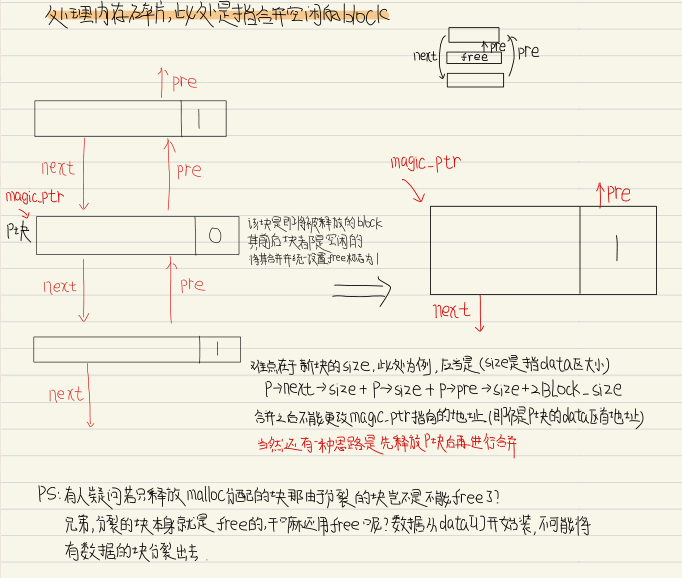 处理内存碎片,此处是指合并空闲的block
pre
next
free
pre
pre
1
next
pre
magic_ptr
P块
0
该块是即将被释放的block
其前后块都是空闲的
将其合并并统一设置free标志为1
next
pre
1
next
magic_ptr
pre
1
next
难点在于新块的size,此处为例,应当是(size是指data区大小)
P→next→size + P→size + P→pre→size+2BLOCK_size
合并之后不能更改magic_ptr指向的地址(即你是P块的data区有地址)
当然还有一种思路是先释放P块后再进行合并
PS:有人疑问若只释放malloc分配的块那由于分裂的块岂不是不能free了?
兄弟,分裂的块本身就是free的,干嘛还用free呢?数据从data[1]开始装,不可能将
有数据的块分裂出去.